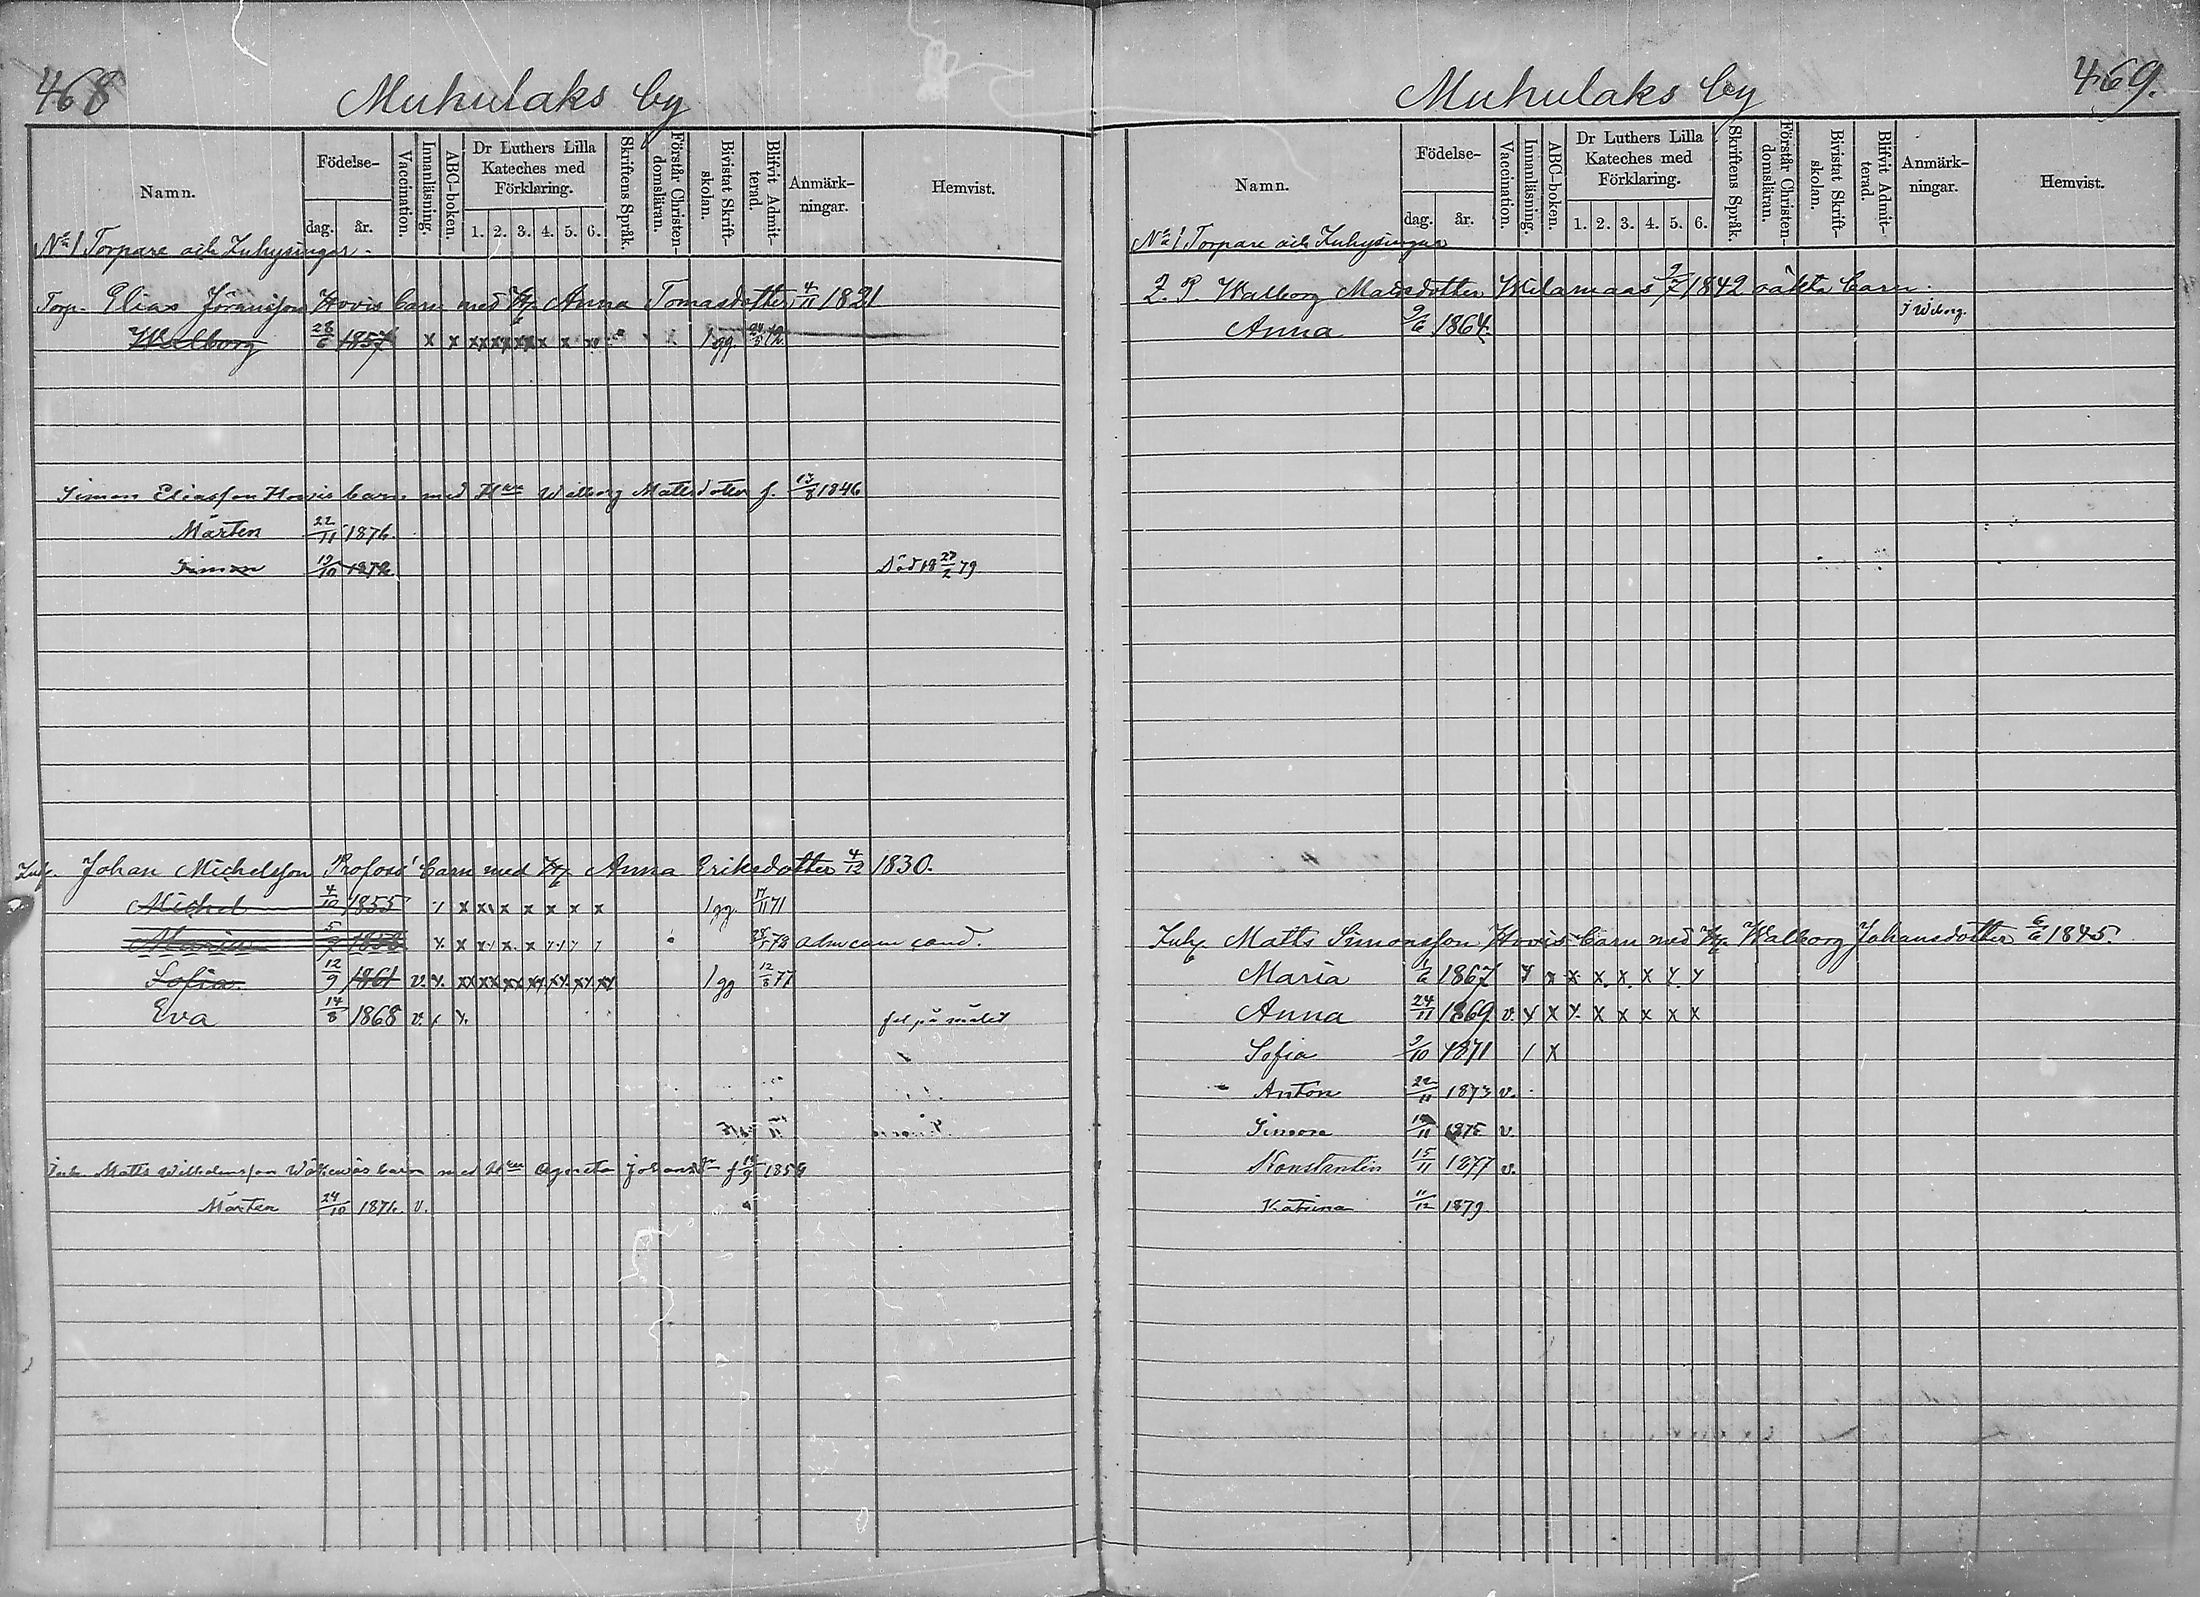 468
Muhulaks by
Namn. Födelse- dag. år. Vaccination. Innanläsning. ABC-boken. Dr Luthers Lilla Kateches med Förklaring. 1. 2. 3. 4. 5. 6. Skriftens Språk. Förstår Christendomsläran. Bivistat Skriftskolan. Blifvit Admitterad. Anmärkningar. Hemvist.
No 1 Torpare och Inhysingar.
Torp. Elias Jöransson Hovis barn med H. Anna Tomasdotter 4/11 1821
Walborg 28/6 1857 x x xx xx xx x x 1 gg.
Simon Eliasson Hovis barn med Hu Walborg Mattsdotter f. 13/8 1846
Mårten 22/11 1876.
Simon 19/10 1872 Död 18 27/2 79
Inh. Johan Michelsson Profoss' barn med H. Anna Eriksdotter 4/12 1830.
Michel 4/10 1855 / x x x x x x x 1 gg. 17/11 71
Maria 5/9 1858 x x x x x 78
Sofia 12/9 1861 v. x. xx xx xx xx xx xx 1 gg 12/8 77
Eva 14/8 1868 v. / x. fel på målet
Inh. Matts Wilhelmsson barn med Hu Agneta Johansdr f 1859
Mårten 24/10 1876. v.
469.
Muhulaks by
Namn. Födelse- dag. år. Vaccination. Innanläsning. ABC-boken. Dr Luthers Lilla Kateches med Förklaring. 1. 2. 3. 4. 5. 6. Skriftens Språk. Förstår Christendomsläran. Bivistat Skriftskolan. Blifvit Admitterad. Anmärkningar. Hemvist.
No 1 Torpare och Inhysingar
Q. P. Walborg Matsdotter Wilamaas 9/7 1842 oäkta barn.
Anna 9/6 1864. i Wiborg.
Inh. Matts Simonsson Hovis barn med H. Walborg Johansdotter 6/6 1845.
Maria 1/6 1867 x x x x x x x x
Anna 24/11 1869 v. x x x x x x x x
Sofia 9/10 1871 / x
Anton 22/11 1873 v.
Simon 1875 v.
Konstantin 15/11 1877 v.
Katrina 11/12 1879.